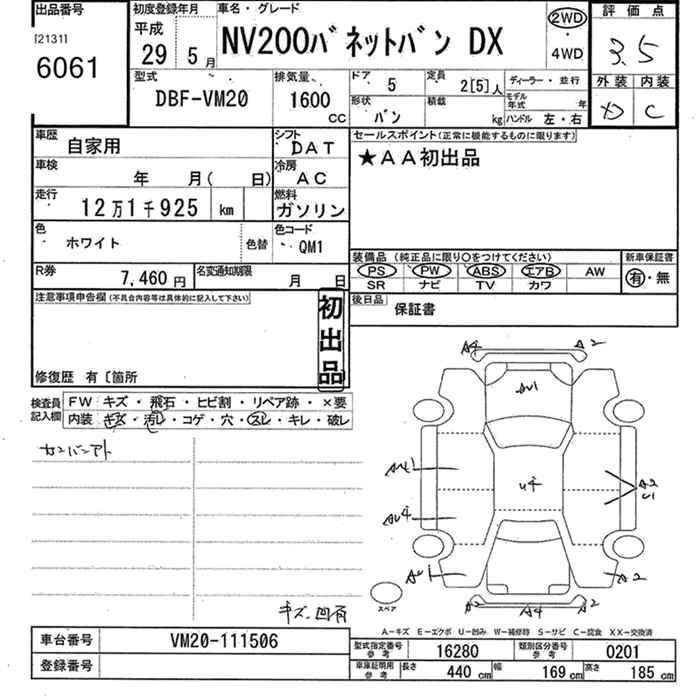 出品番号 初度登録年月 車名・グレード 評価点
[2131]
6061
平成
29 5月 NV200バネットバン DX 2WD
・
4WD
3.5
型式 排気量 ドア 5 定員 2[5]人 ディーラー・並行 外装 内装
DBF-VM20 1600 CC 形状 バン 積載 kg モデル年式 年 ハンドル 左・右 C
車歴 自家用 シフト DAT セールスポイント(正常に機能するものに限ります)
★AA初出品
車検 年 月( 日) 冷房 AC
走行 12万1千925 km 燃料 ガソリン
色 ホワイト 色替 色コード QM1
装備品 (純正品に限り○をつけてください) 新車保証書
PS PW ABS エアB AW 有・無
SR ナビ TV カワ
R券 7,460円 名変通知期限 月 日
後日品 保証書
注意事項申告欄(不具合内容等は具体的に記入して下さい)
初出品
修復歴 有〔箇所
検査員記入欄 FW キズ・飛石・ヒビ割・リペア跡・×要
内装 キズ・汚レ・コゲ・穴・スレ・キレ・破レ
A4 A2
AU1
カンバンアト
AU1 A2
U4 U1
AU4
AU1 A2
スペア
A2 A4 A2
キズ、凹有
A-キズ E-エクボ U-凹み W-補修跡 S-サビ C-腐食 XX-交換済
車台番号 VM20-111506
登録番号
型式指定番号 参考 16280 類別区分番号 参考 0201
車庫証明用 参考 長さ 440 cm 幅 169 cm 高さ 185 cm